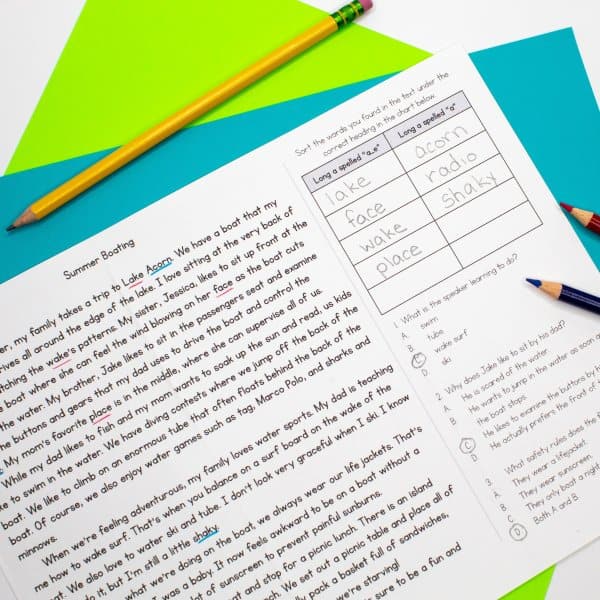 Summer Boating
my family takes a trip to Lake Acorn. We have a boat that my
all around the edge of the lake. I love sitting at the very back of
the wake's patterns. My sister, Jessica, likes to sit up front at the
boat where she can feel the wind blowing on her face as the boat cuts
the water. My brother, Jake likes to sit in the passengers seat and examine
the buttons and gears that my dad uses to drive the boat and control the
My mom's favorite place is in the middle, where she can supervise all of us.
While my dad likes to fish and my mom wants to soak up the sun and read, us kids
to swim in the water. We have diving contests where we jump off the back of the
boat. We like to climb on an enormous tube that often floats behind the back of the
boat. Of course, we also enjoy water games such as tag, Marco Polo, and sharks and
minnows.
When we're feeling adventurous, my family loves water sports. My dad is teaching
me how to wake surf. That's when you balance on a surf board on the wake of the
boat. We also love to water ski and tube. I don't look very graceful when I ski. I know
do it, but I'm still a little shaky.
what we're doing on the boat, we always wear our life jackets. That's
I was a baby. It now feels awkward to be on a boat without a
of sunscreen to prevent painful sunburns.
and stop for a picnic lunch. There is an island
We set out a picnic table and place all of
pack a basket full of sandwiches,
we're starving!
sure to be a fun and
Sort the words you found in the text under the
correct heading in the chart below.
Long a spelled "a_e" Long a spelled "a"
lake acorn
face radio
wake shaky
place
1. What is the speaker learning to do?
A. swim
B. tube
C wake surf
D. ski
2. Why does Jake like to sit by his dad?
A. He is scared of the water.
B. He wants to jump in the water as soon
the boat stops.
C He likes to examine the buttons by
D. He actually prefers the front of
3. What safety rules does the
A. They wear a lifejacket.
B. They wear sunscreen.
C. They only boat a
D Both A and B.